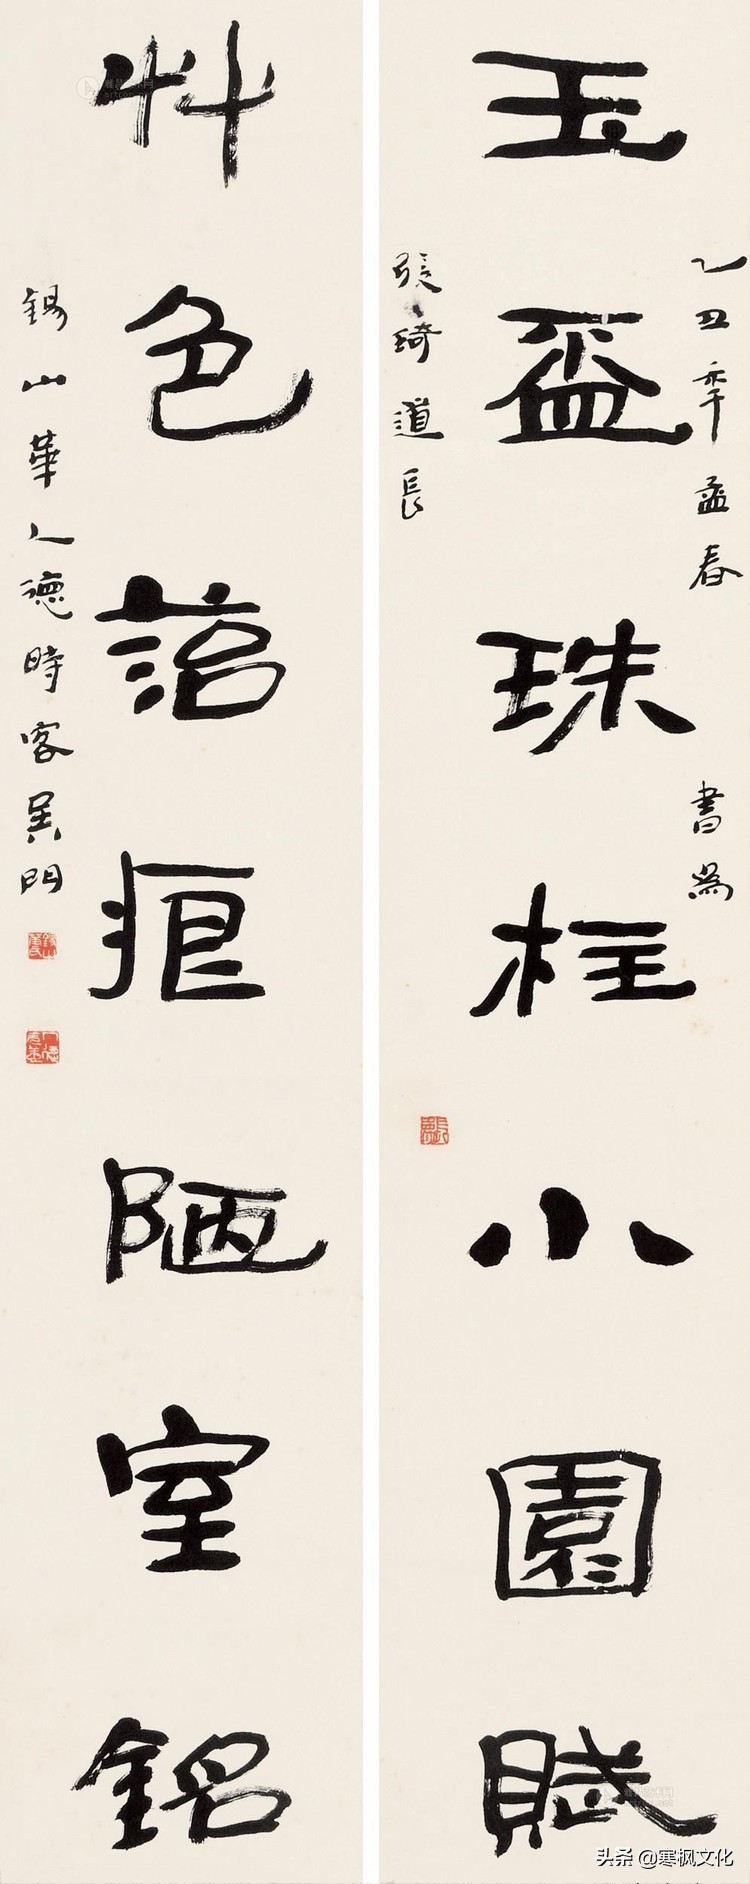 乙丑年孟春 書爲
玉盃珠柱小園賦
張琦道長
艸色菭痕陋室銘
錫山華人德時客吳門
头条 @寒枫文化